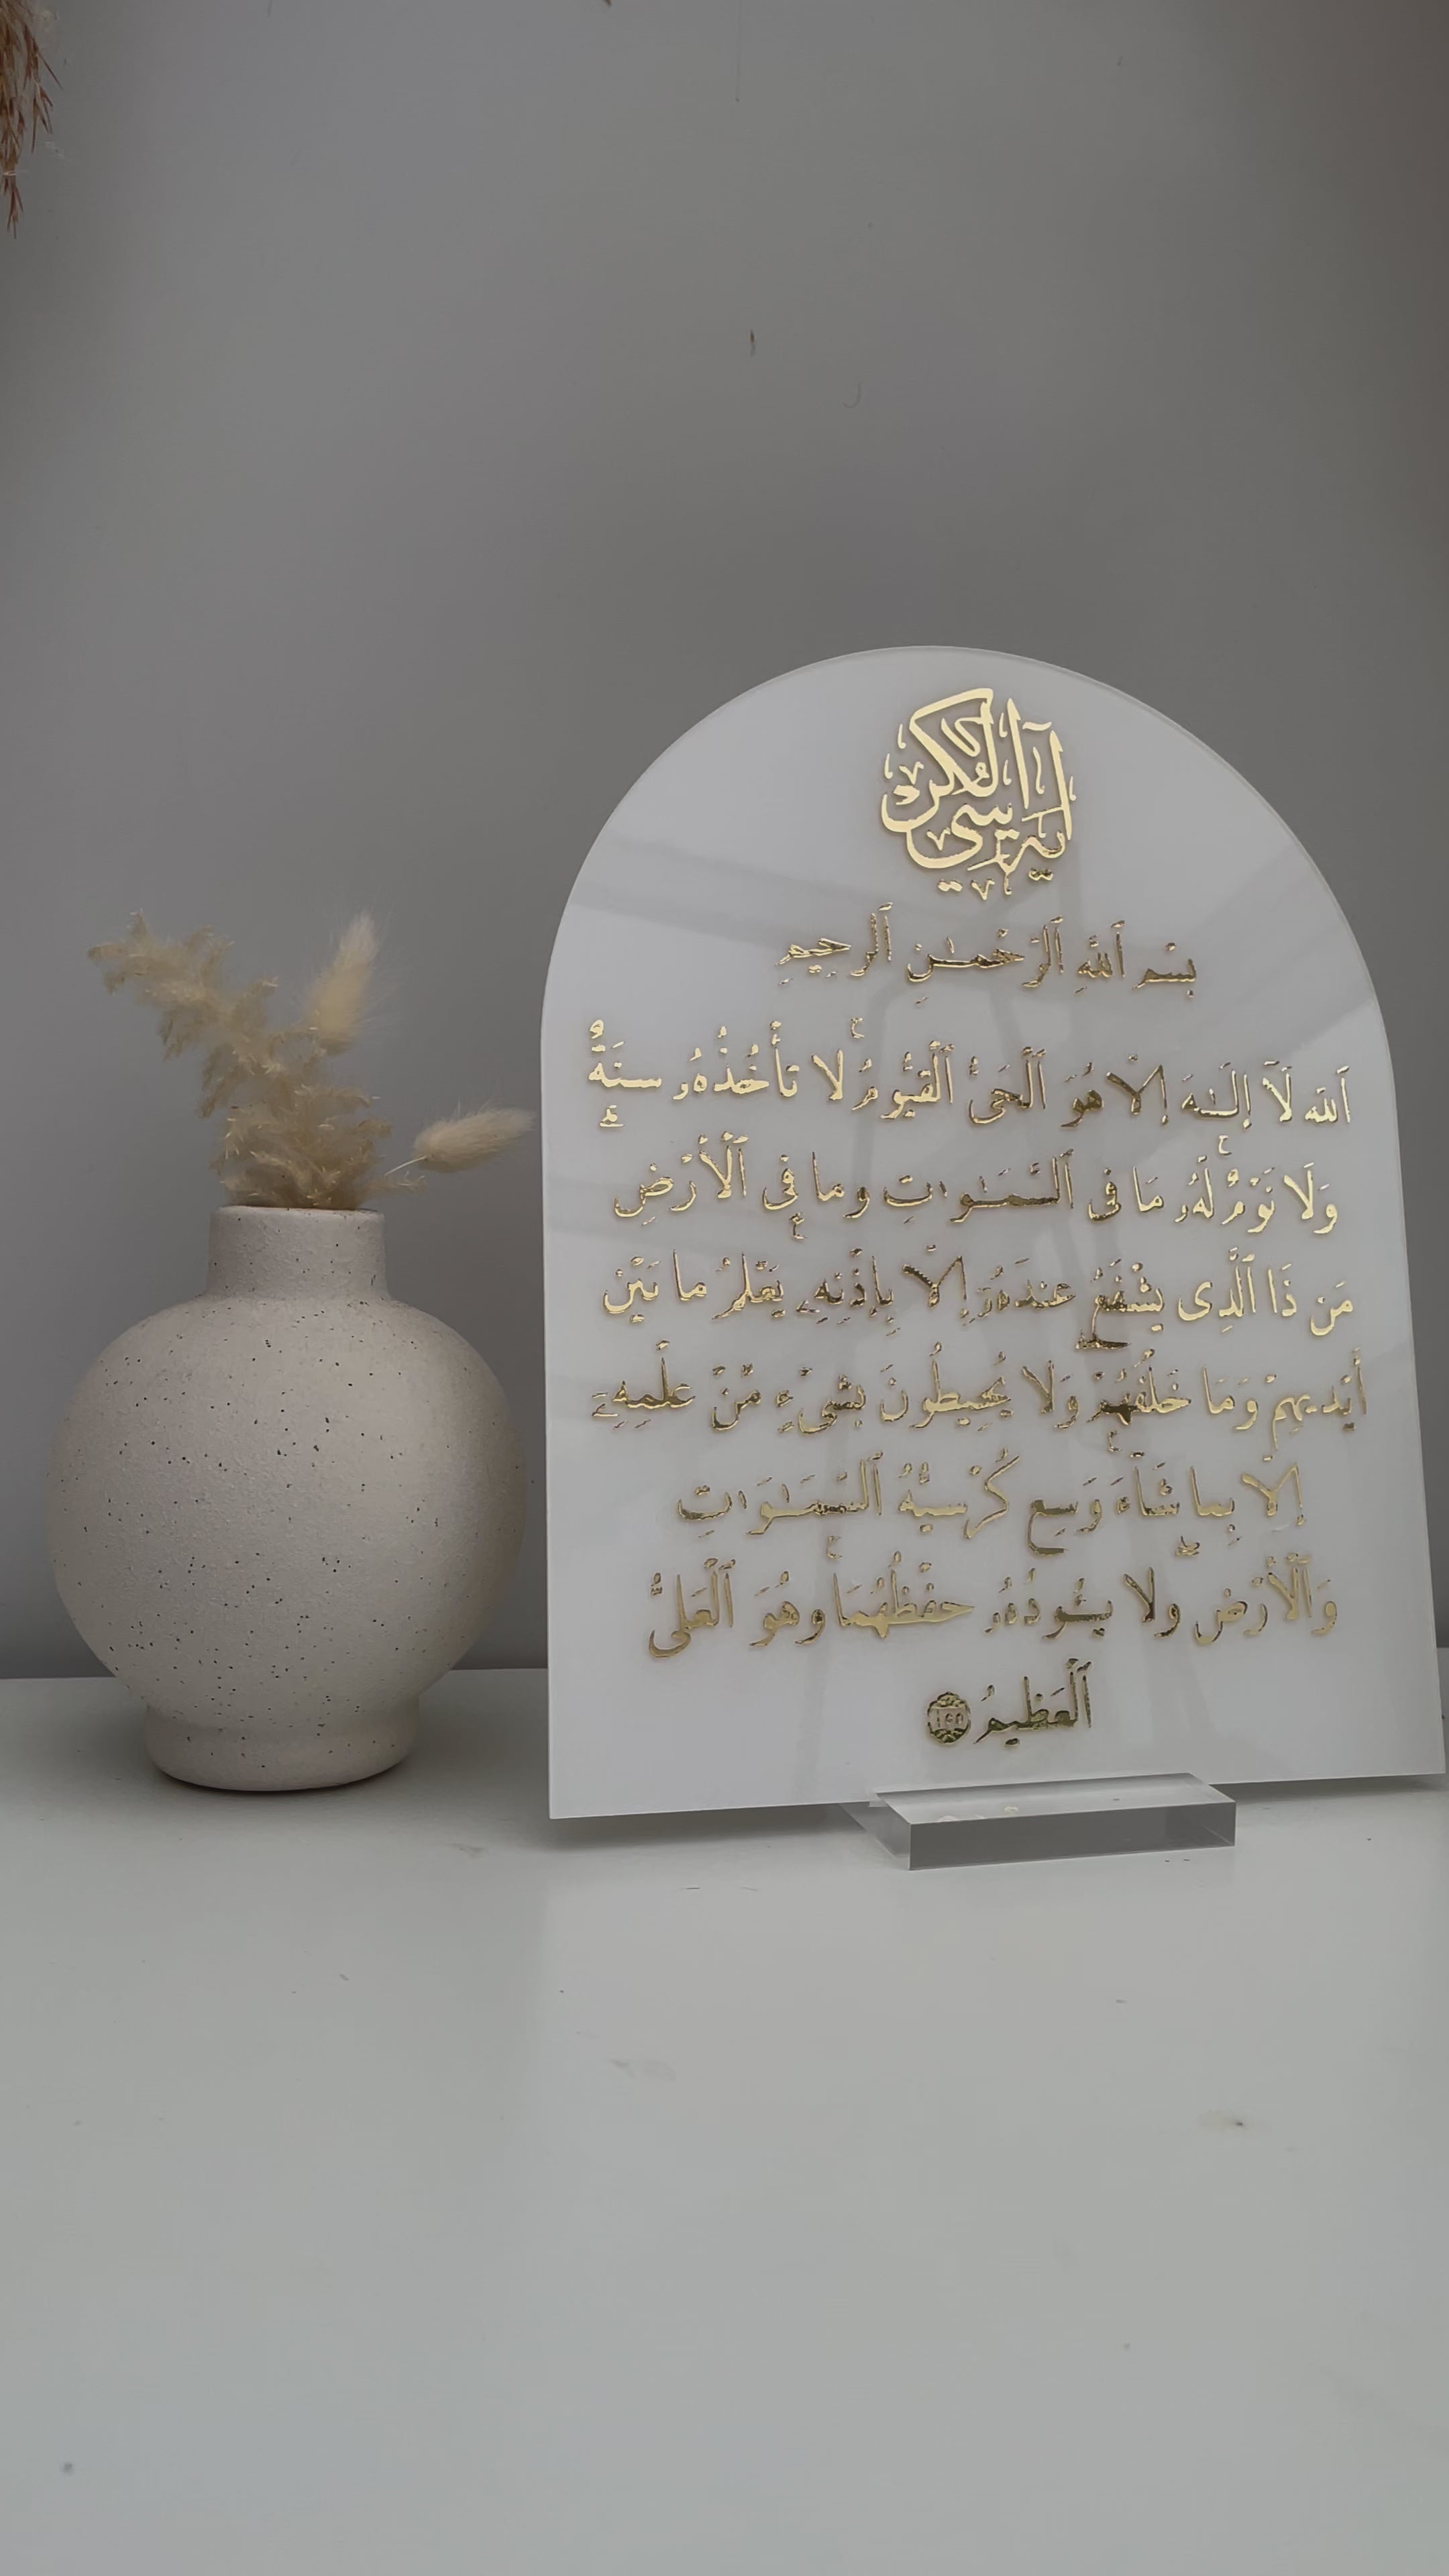 آية الكرسي
بِسْمِ ٱللَّهِ ٱلرَّحْمَـٰنِ ٱلرَّحِيمِ
ٱللَّهُ لَآ إِلَـٰهَ إِلَّا هُوَ ٱلْحَىُّ ٱلْقَيُّومُ ۚ لَا تَأْخُذُهُۥ سِنَةٌ
وَلَا نَوْمٌ ۚ لَّهُۥ مَا فِى ٱلسَّمَـٰوَٰتِ وَمَا فِى ٱلْأَرْضِ ۗ
مَن ذَا ٱلَّذِى يَشْفَعُ عِندَهُۥٓ إِلَّا بِإِذْنِهِۦ ۚ يَعْلَمُ مَا بَيْنَ
أَيْدِيهِمْ وَمَا خَلْفَهُمْ ۖ وَلَا يُحِيطُونَ بِشَىْءٍ مِّنْ عِلْمِهِۦٓ
إِلَّا بِمَا شَآءَ ۚ وَسِعَ كُرْسِيُّهُ ٱلسَّمَـٰوَٰتِ
وَٱلْأَرْضَ ۖ وَلَا يَـُٔودُهُۥ حِفْظُهُمَا ۚ وَهُوَ ٱلْعَلِىُّ
ٱلْعَظِيمُ ٢٥٥